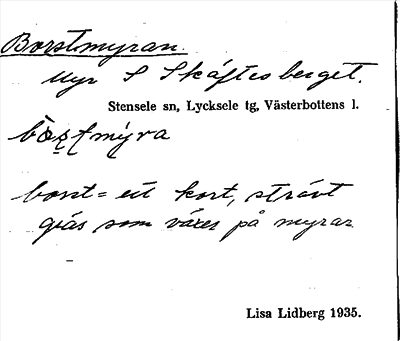 Borstmyran.
Myr S Skåftesberget.
Stensele sn, Lycksele tg, Västerbottens l.
borst = ett kort, strävt
gräs som växer på myrar
Lisa Lidberg 1935.